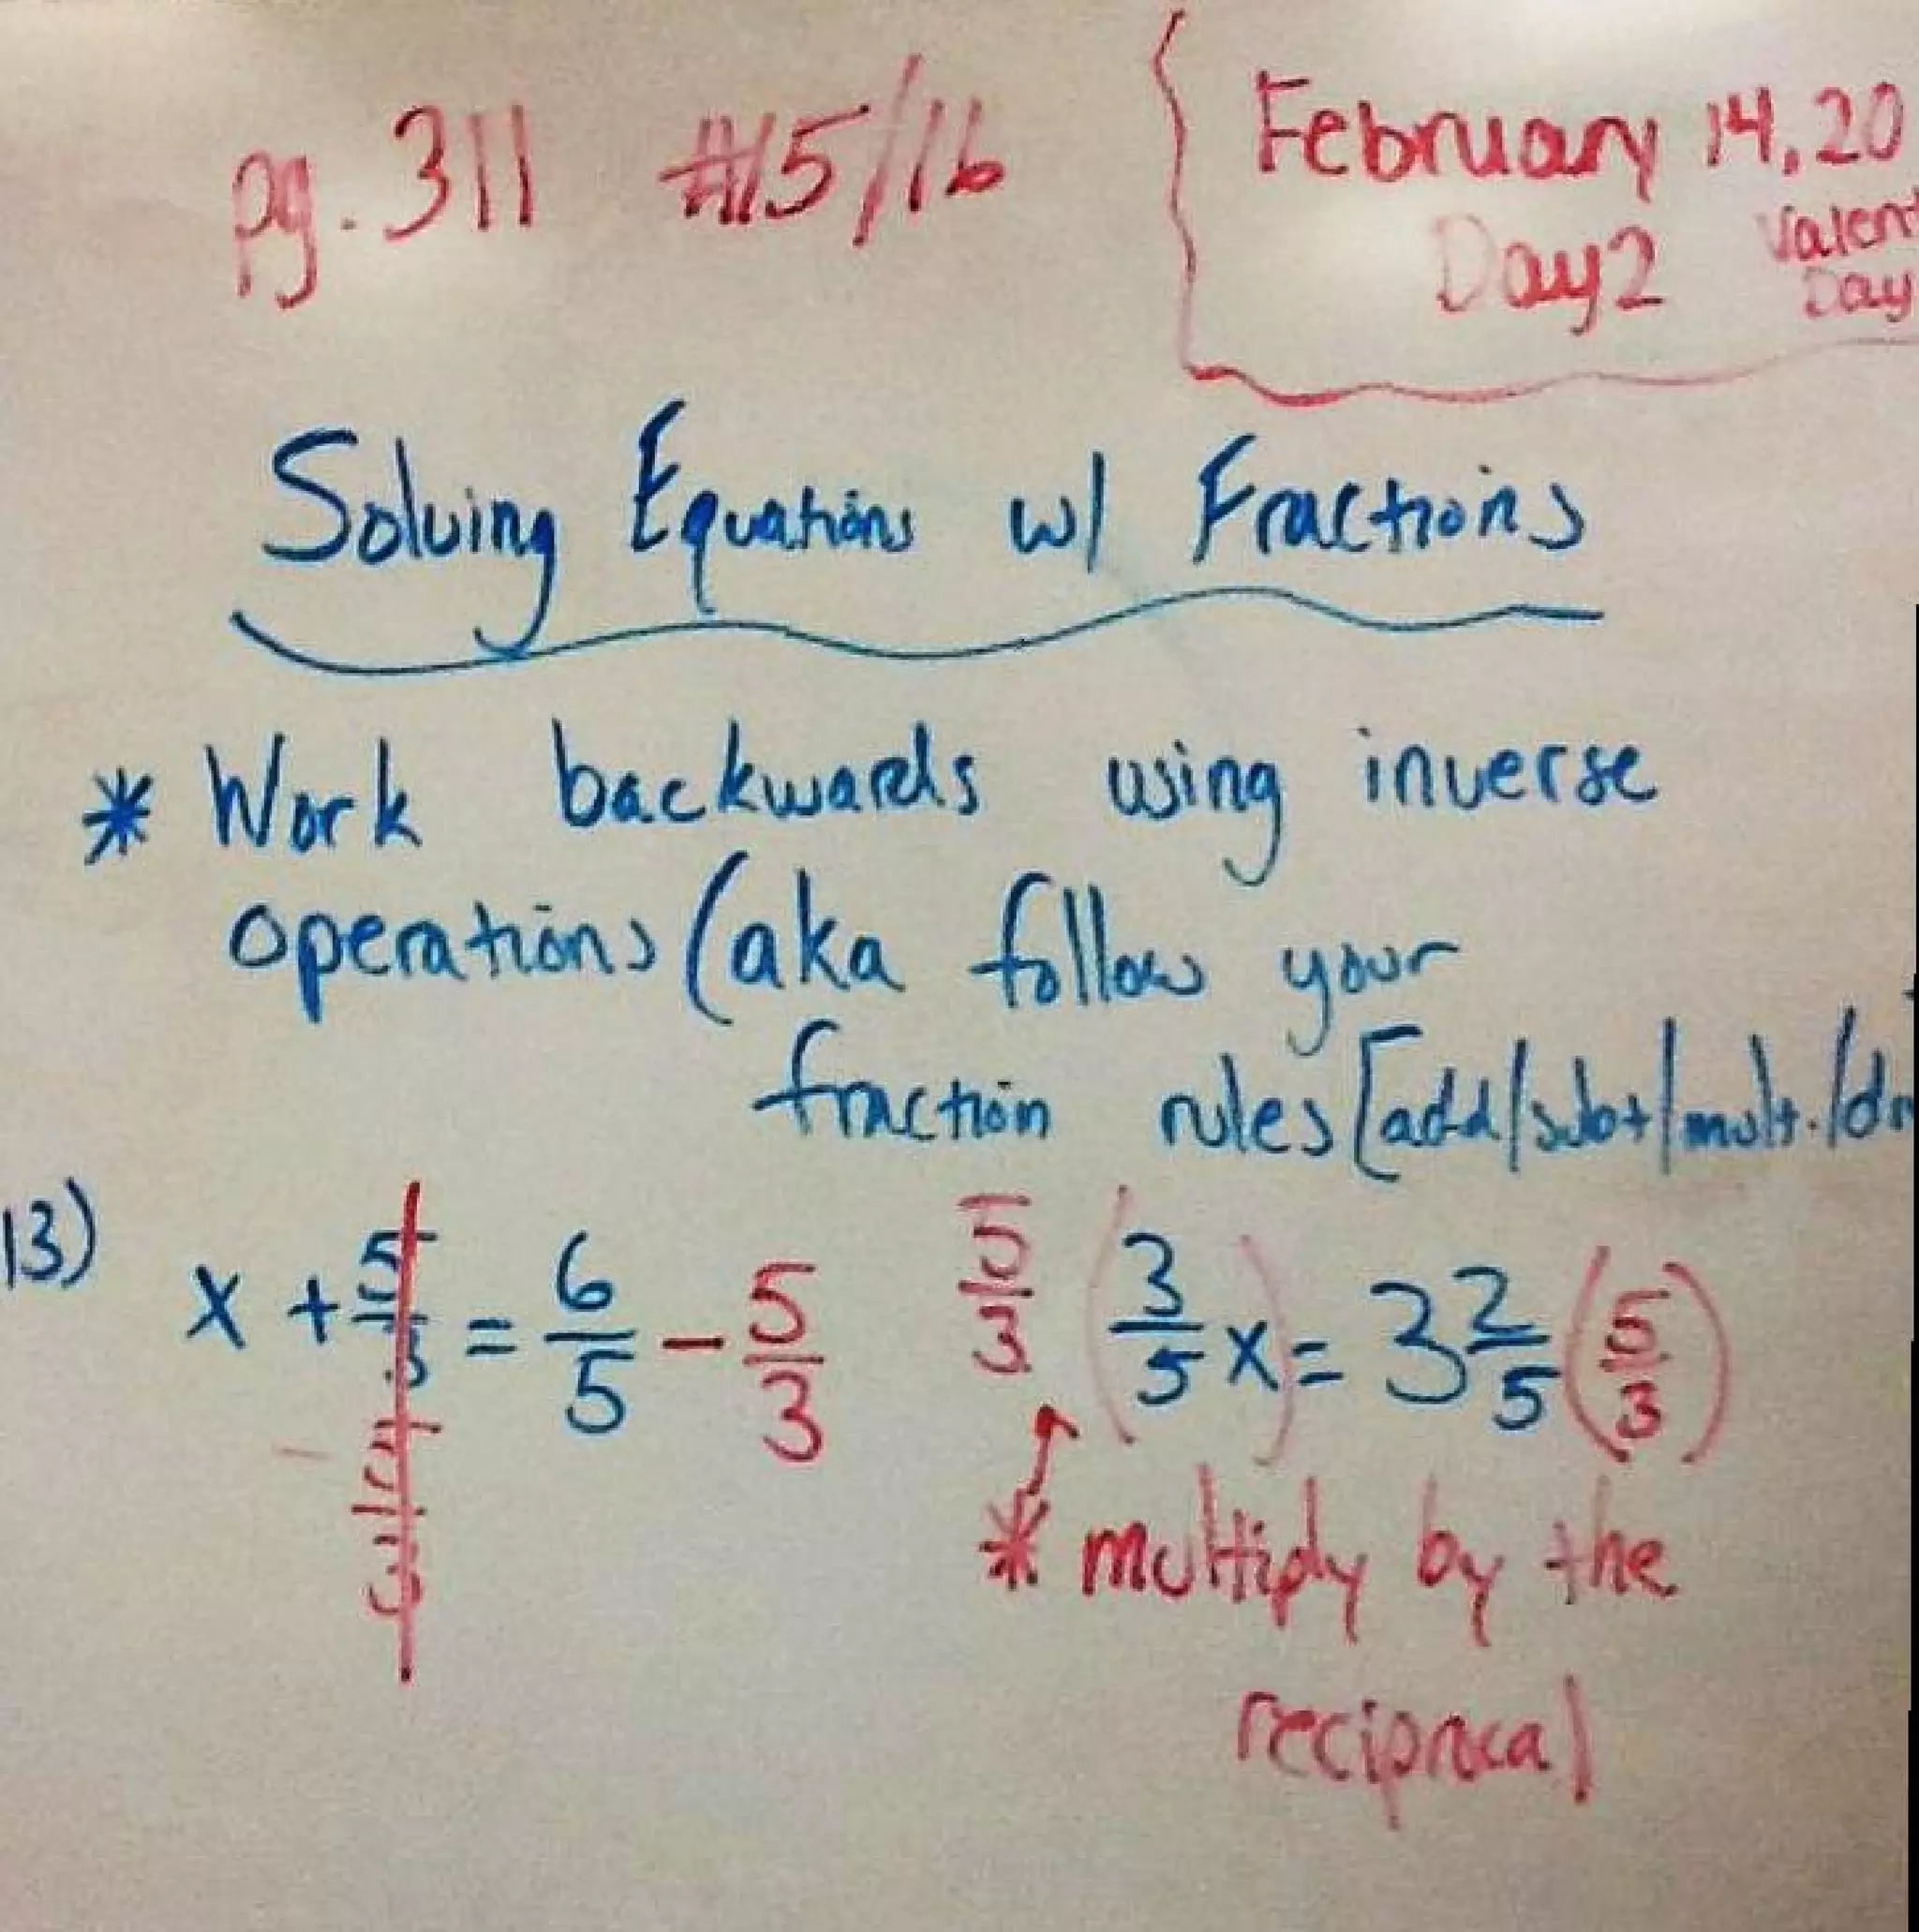 pg. 311 #15/16
February 14, 20
Day 2 Valent
Day
Solving Equations w/ Fractions
* Work backwards using inverse
operations (aka follow your
fraction rules [add/subt/mult./div
13) x + 5/3 = 6/5 - 5/3
- 5/3
5/3 (3/5 x) = 3 2/5 (5/3)
* multiply by the
reciprocal